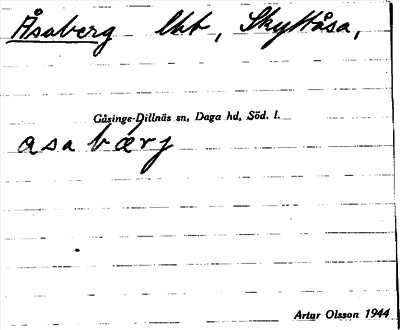 Åsaberg lht, Skyttåsa,
Gåsinge-Dillnäs sn, Daga hd, Söd. l.
åsabärj
Artur Olsson 1944